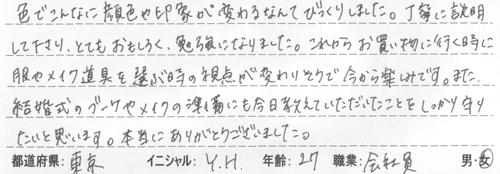 色でこんなに顔色や印象が変わるなんてびっくりしました。丁寧に説明
して下さり、とてもおもしろく、勉強になりました。これからお買い物に行く時に
服やメイク道具を選ぶ時の視点が変わりそうで今から楽しみです。また、
結婚式のブーケやメイクの準備にも今日教えていただいたことをしっかり守り
たいと思います。本当にありがとうございました。
都道府県: 東京 イニシャル: Y.H. 年齢: 27 職業: 会社員 男・女